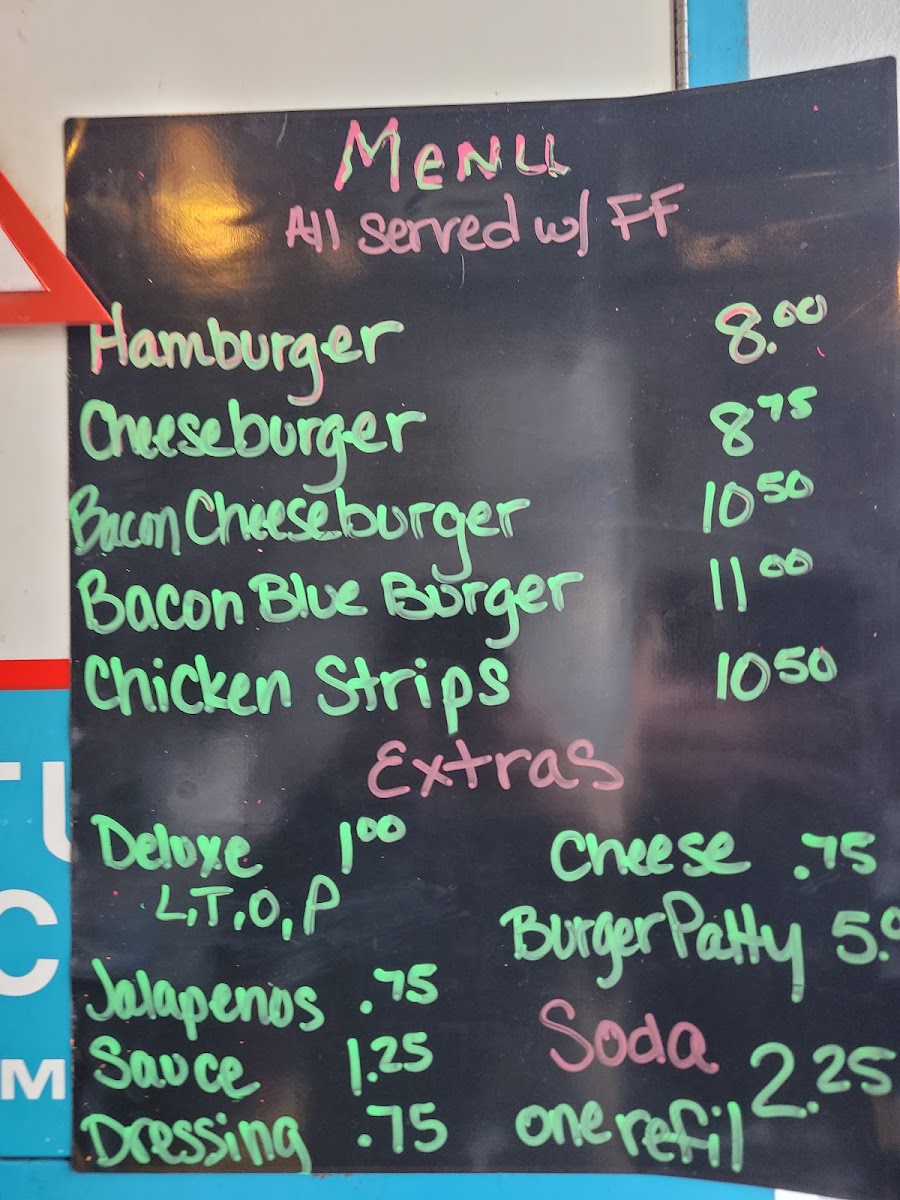 Menu
All served w/ FF
Hamburger 8.00
Cheeseburger 8 75
Bacon Cheeseburger 10 50
Bacon Blue Burger 11 00
Chicken Strips 10 50
Extras
Deluxe 1 00
L,T,O,P
Cheese .75
Burger Patty 5.
Jalapenos .75
Sauce 1.25
Dressing .75
Soda 2.25
one refil
TU
C
M